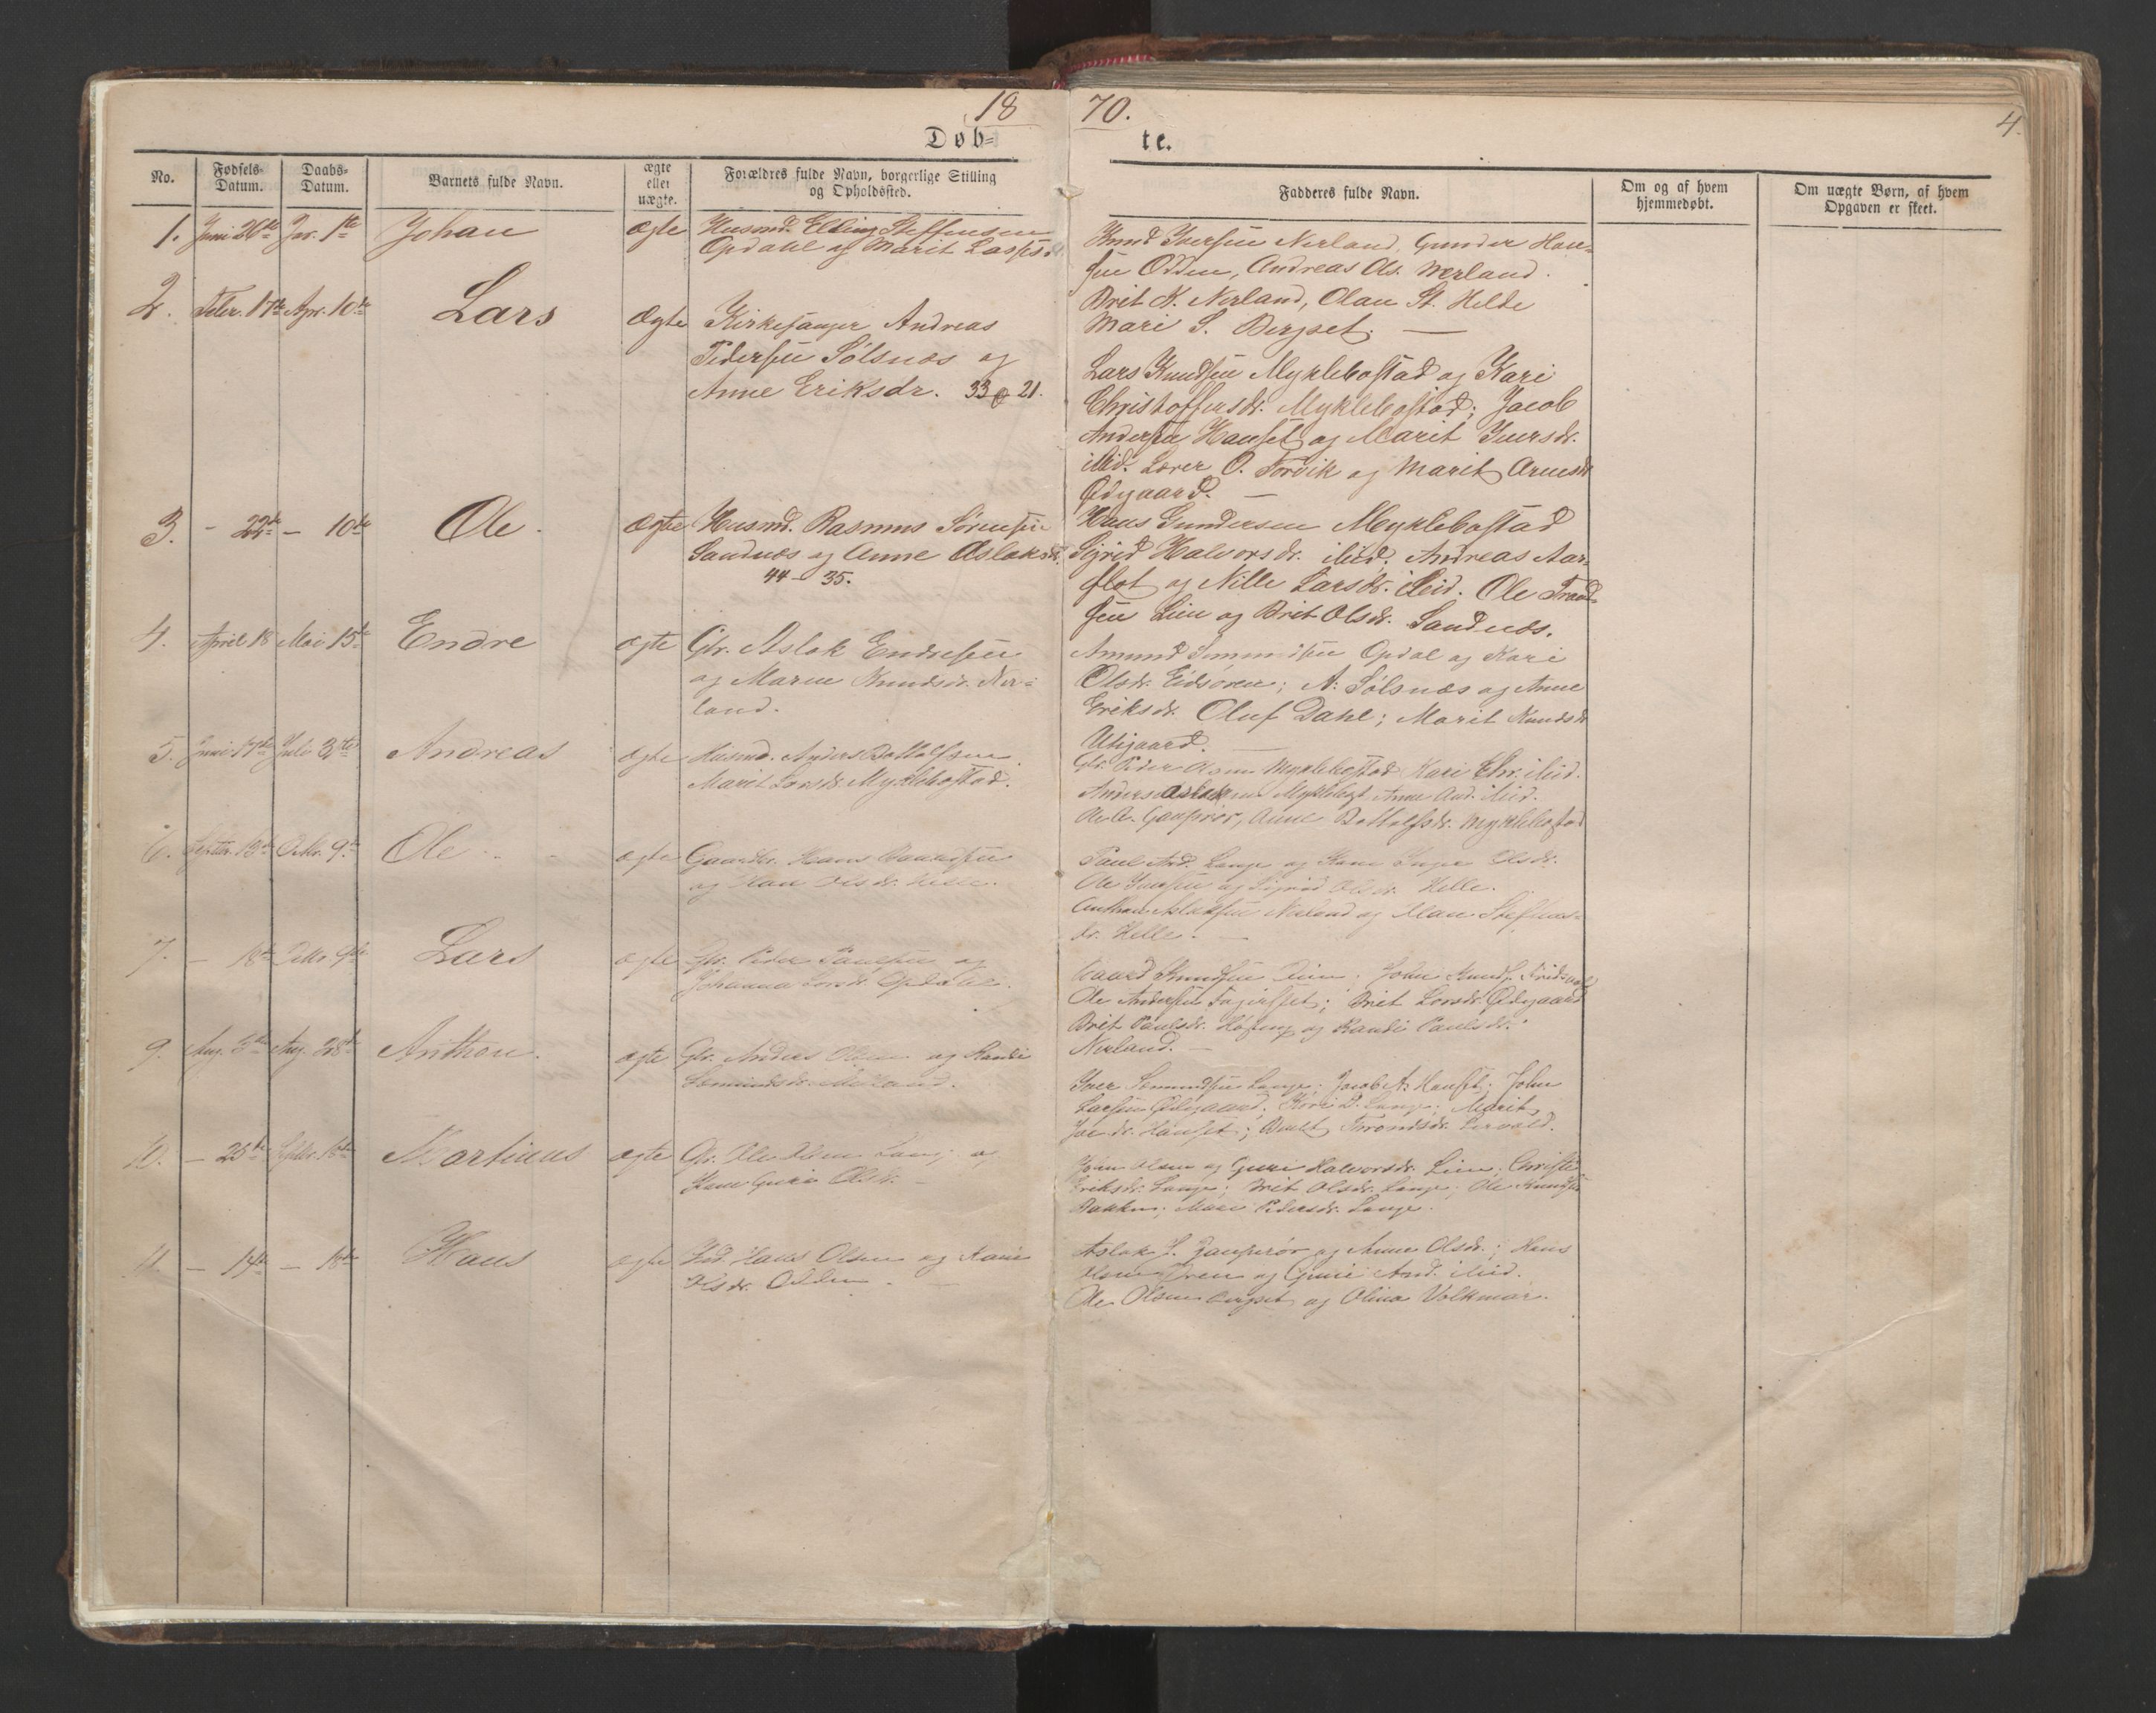 18 70.
4.
Døb= te.
No. Fødsels-Datum. Daabs-Datum. Barnets fulde Navn. ægte eller uægte. Forældres fulde Navn, borgerlige Stilling og Opholdssted. Fadderes fulde Navn. Om og af hvem hjemmedøbt. Om uægte Børn, af hvem Opgaven er skeet.
1. Juni 26de 1ste Johan Ægte Husmd. Elling Steffensen
Opdahl og Marit Lassesd.
Knud Iversen Nerland, Gunder Han-
sen Odden, Andreas Ols. Nerland.
Brit K. Nerland, Olau St. Helde
Mari S. Bergset. —
2. Febr. 17de Apr. 10de Lars Ægte Kirkesanger Andreas
Pedersen Sølsnæs og
Anne Eriksdr. 33 & 21.
Lars Knudsen Myklebostad og Kari
Christoffersdr. Myklebostad; Jacob
Andersen Hauset og Marit Iversdr.
ibid. Lærer O. Torvik og Marit Arnesdr
Ødgaard. —
3. - 22de - 10de Ole. Ægte Husmd. Rasmus Sørensen
Sandnæs og Anne Aslaksdr.
44 - 35.
Hans Gundersen Myklebostad
Sigrid Halvorsdr. ibid; Andreas Aar-
flot og Nille Larsdr. ibid. Ole Trond-
sen Lien og Brit Olsdr. Sandnæs.
4. April 18 Mai 15de Endre ægte Gbr. Aslak Endresen
og Maren Knudsdr. Ner-
land.
Amund Opdal og Kari
Olsdr. Eidsøren; A. Sølsnæs og Anne
Eriksdr. Oluf Dahl; Marit Knudsdr
Utigaard. —
5. Juni 17de Juli 3die Andreas ægte Husmd. Anders Bottolfsen
Marit Larsdr. Myklebostad.
Gbr. Peder Olsen Myklebostad Kari Chr. ibid.
Anders Aslaksen Myklebost. Anne And. ibid.
Ole A. Gausprør, Anne Bottolfsdr. Myklebostad
6. Septbr. 13de Octbr. 9de Ole. ægte Gaardbr. Hans
og Olau Olsdr. Helle.
Paul And. Lange og Kane Inger Olsdr.
Ole Iversen og Sigrid Olsdr. Helle.
Anthon Aslaksen Nerland og Olau Steffens-
dr. Helle. —
7. - 18de Octbr. 9de Lars ægte Gbr. Peder Paulsen og
Johanna Larsdr. Opdahl.
Baard Knudsen John Knuds.
Ole Andersen Brit Larsdr. Ødgaard
Brit Paulsdr. og Randi Paulsdr.
Nerland. —
9. Aug. 3de Aug. 28de Anthon. ægte Gbr. Anders Olsen og Randi
Iver Lange; Jacob A. Hauset; John
Larsen Ødegaard; Kari Lange; Marit
Hauset; Trondsdr.
10. - 25de Septbr. 18de Martinus ægte Gbr. Ole Olsen Lange og
Guri Olsdr. —
John Olsen og Guri Halvorsdr. Lien; Christi
Eriksdr. Lange; Brit Olsdr. Lange; Ole Knudsen
Bakken; Mari Pedersdr. Lange.
11. - 14de - 18de Hans ægte Hans Olsen og Kari
Olsdr. Odden. —
Aslak J. Gausprør og Anne Olsdr.; Hans
Olsen Øren og Guri And. ibid.
Ole Olsen Bergset og Olina Volkmar.